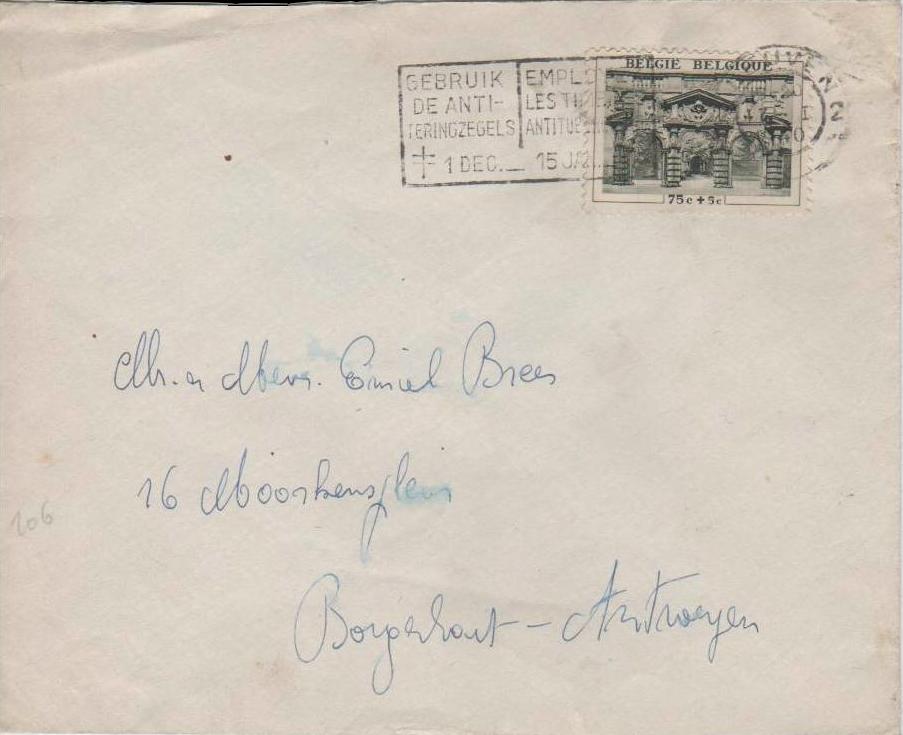 GEBRUIK
DE ANTI-
TERINGZEGELS
EMPLO
LES TI
ANTITUB
1 DEC. — 15 JA
UVEN
2
BELGIË BELGIQUE
75c + 5c
Mr. en Mevr. Emiel Brees
16 Moorkensplein
Borgerhout - Antwerpen
106